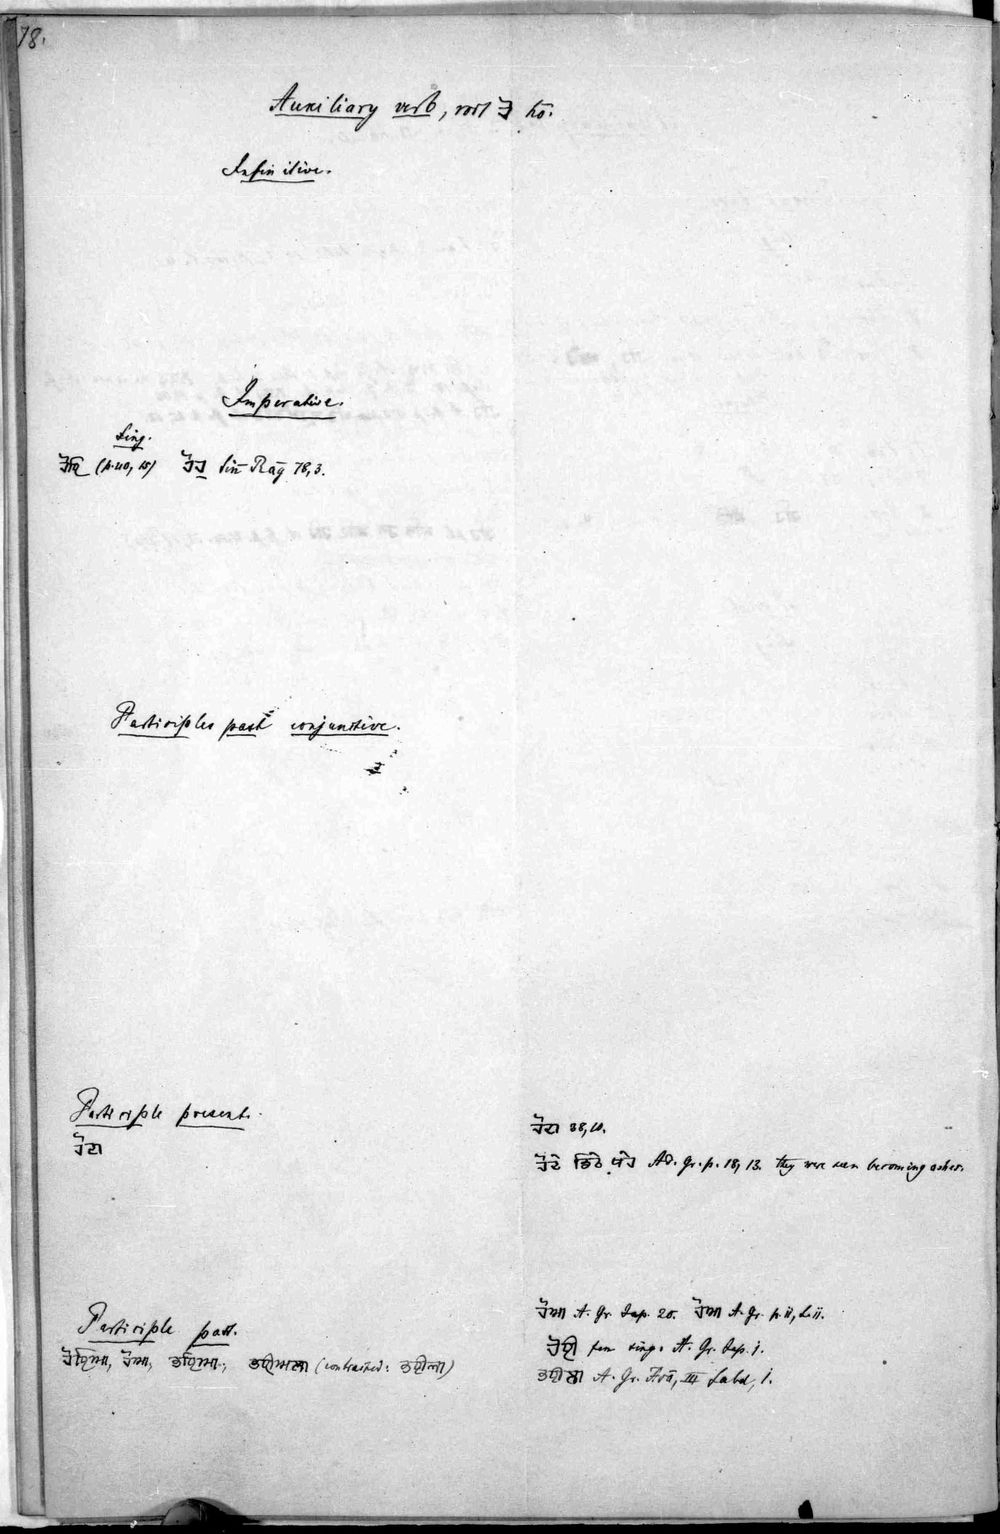 78.
Auxiliary verb, root ਹੋ hō.
Infinitive.
Imperative.
Sing.
ਹੋਹਿ (p. 40, 15) ਹੋਹੁ Sirī Rāg 78, 3.
Participles past conjunctive.
Participle present.
ਹੋਤਾ
ਹੋਦਾ 38, 10.
ਹੋਦੇ ਡਿਠੇ ਖੇਹ Ad. Gr. p. 18, 13. they were seen becoming ashes.
Participle past.
ਹੋਇਆ, ਹੋਆ, ਭਇਆ, ਭਈਅਲਾ (contracted: ਭਈਲਾ)
ਹੋਆ A. Gr. Jap. 20. ਹੋਆ A. Gr. p. 11, L. 11.
ਹੋਈ fem sing. A. Gr. Jap. 1.
ਭਈਲਾ A. Gr. Āsā, III Sabd, 1.